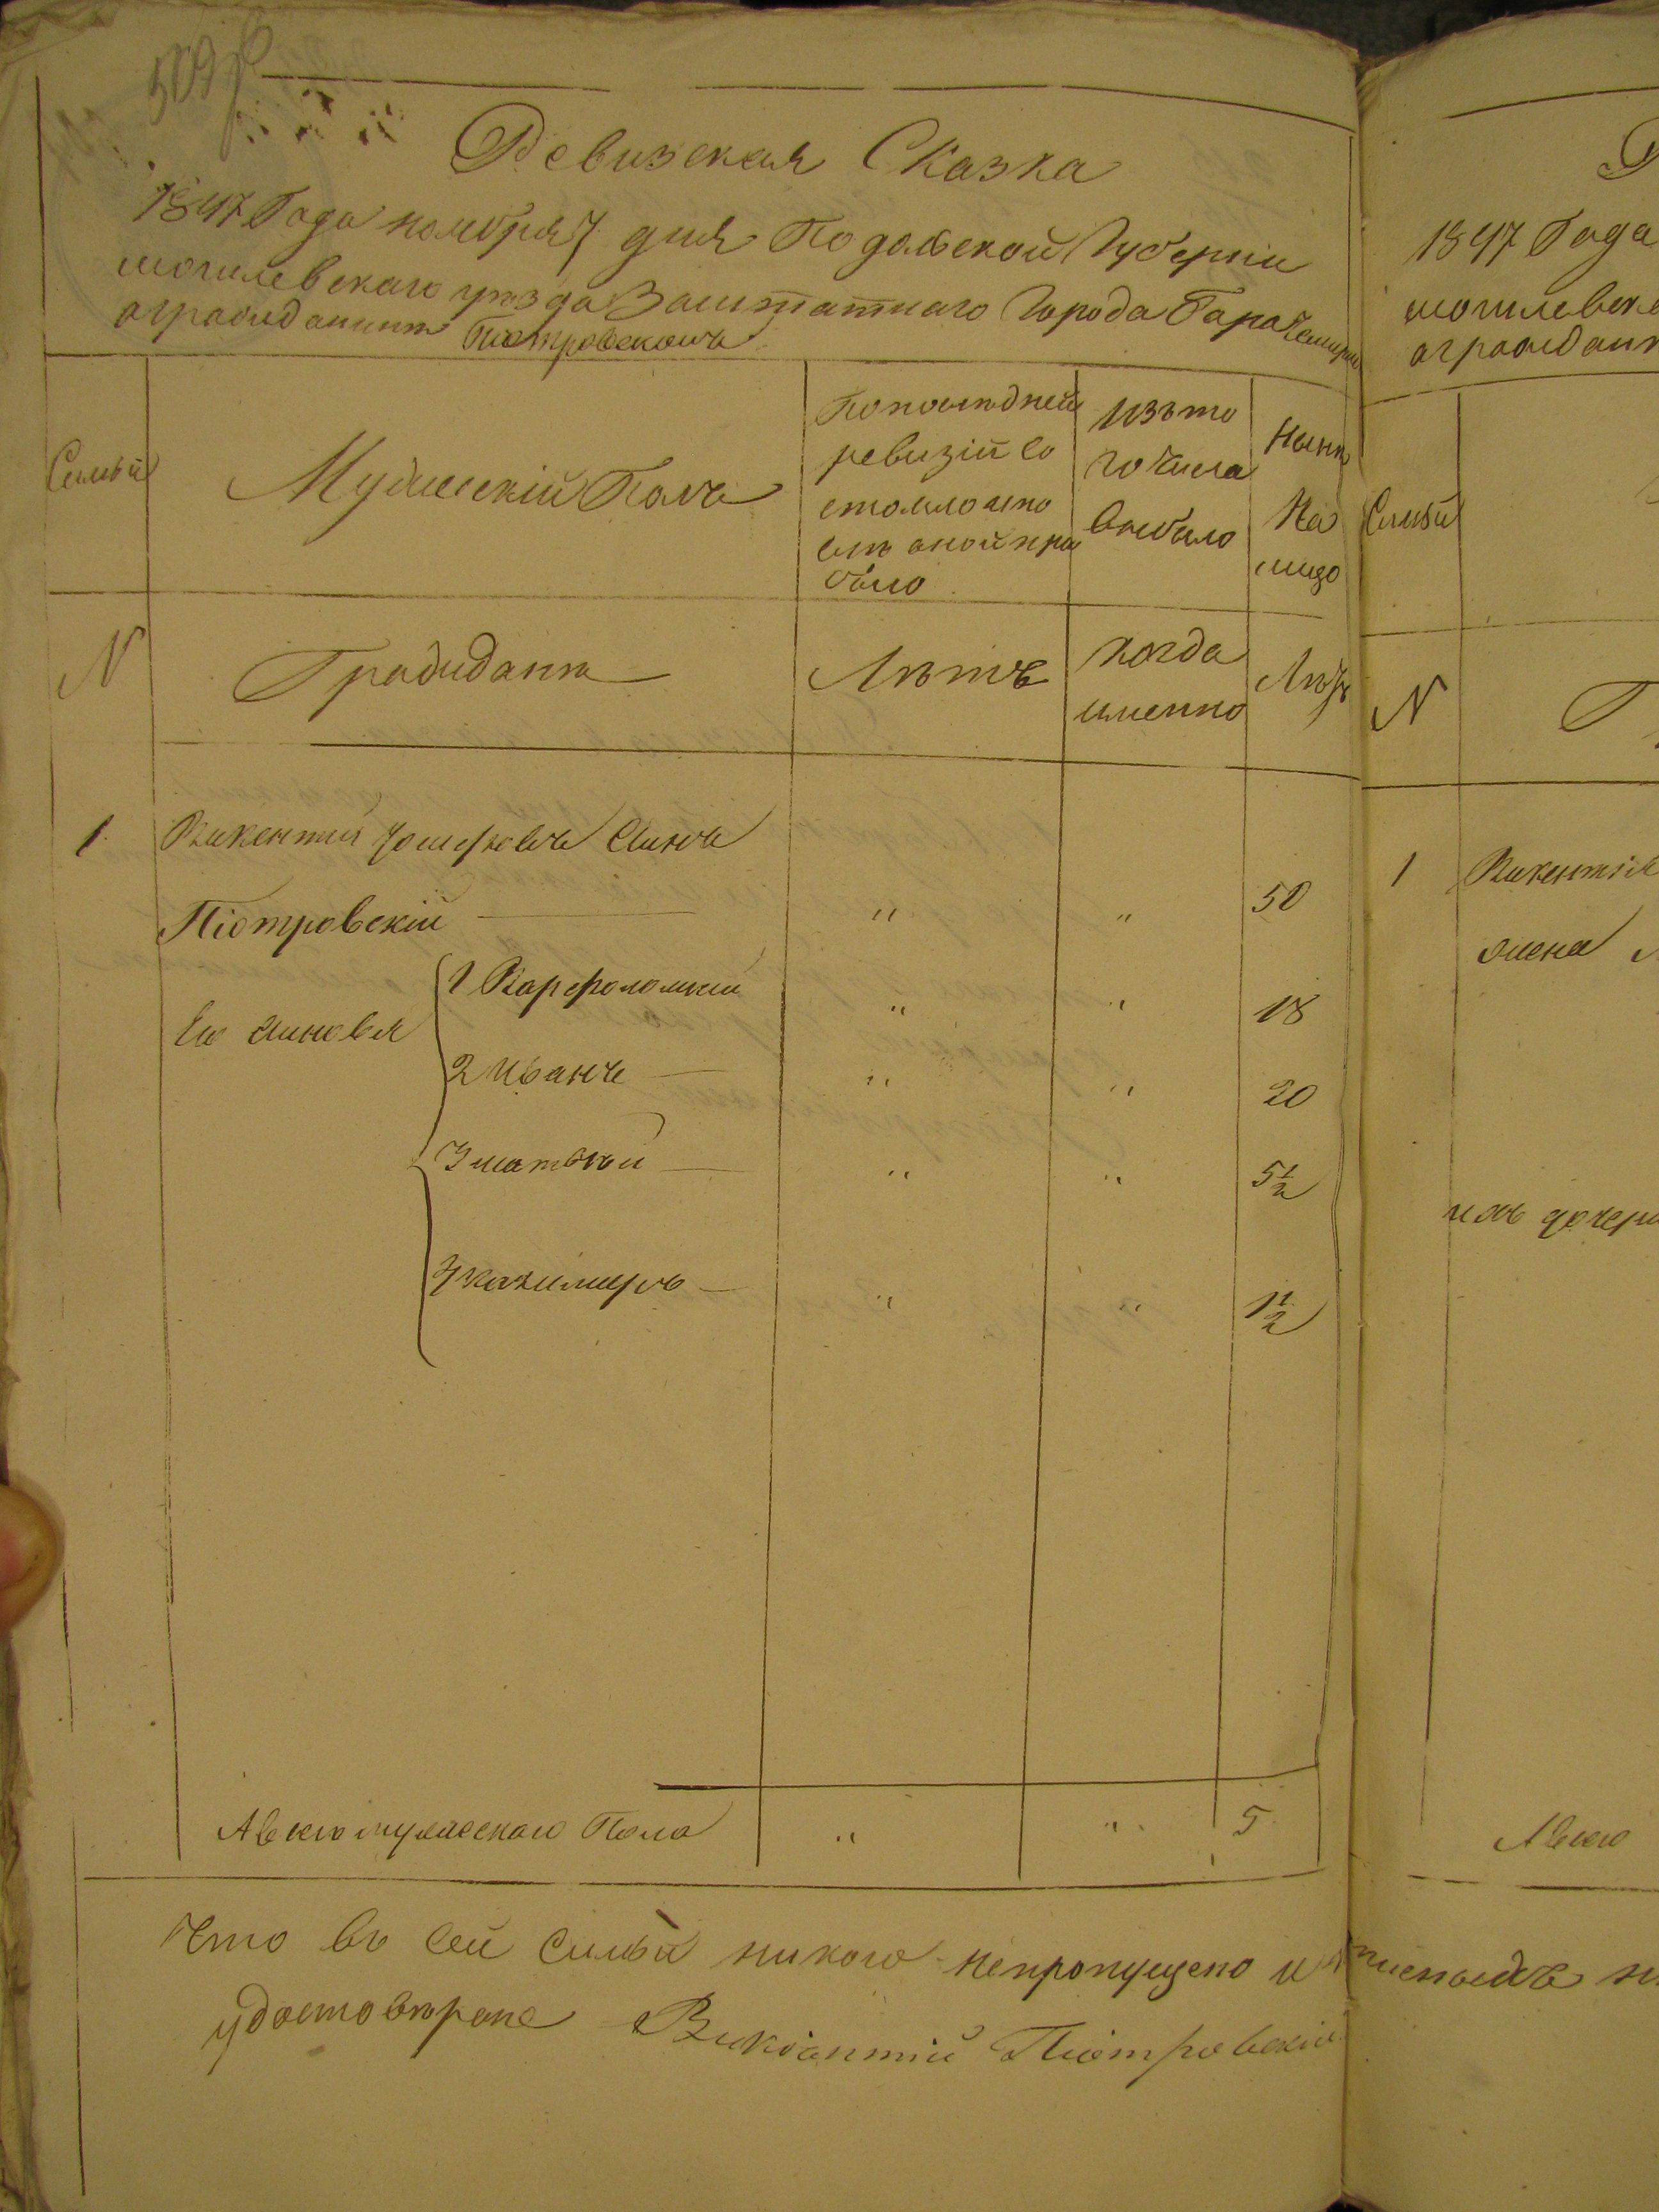 509
Ревизская Сказка
1847 Года ноября 7 дня Подольской Губерніи
могилевскаго уѣзда Заштатнаго Города
огражданинѣ Піотровскомъ
Семьи
Мужескій Полъ
Попослѣдней
ревизіи со
стояло ипо
слѣ оной при
было
Изъто
го числа
выбыло
Нынѣ
На
лицо
N
Граждане
Лѣтъ
Когда
именно
Лѣтъ
1 Викентий Сынъ
Піотровскій — " " 50
Его сыновья
1 Варфоломей " " 18
2 Иванъ — " " 20
3 матвѣй — " " 5½
4 казимиръ — " " 1½
Авсего мужескаго Пола " " 5
Что въ сей семьи никого непропущено и
удостовѣряю Викентій Піотровскій
1847 Года
могилевска
огражданин
Семьи
N
1 Викентія
жена
ихъ дочери
Авсего